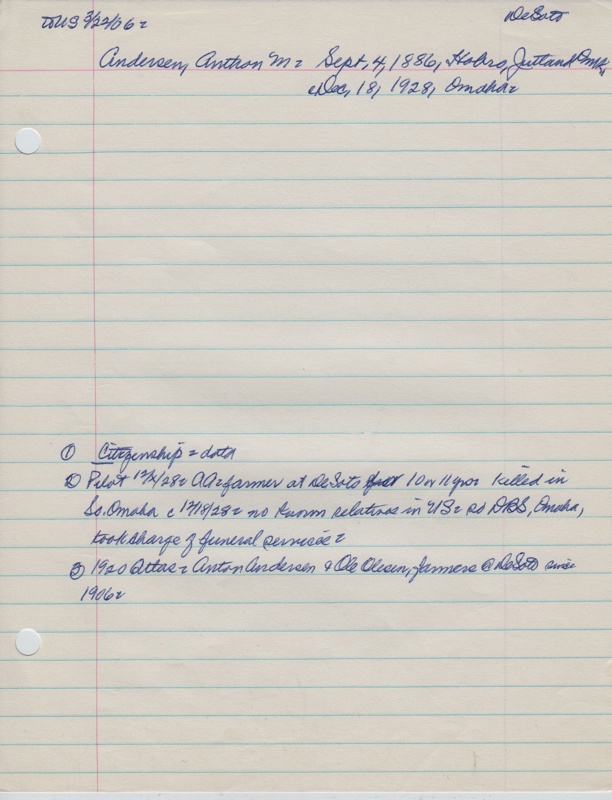 to US 3/22/06= DeSoto
Andersen, Anthon M= Sept. 4, 1886, Jutland Dmk,
c Dec, 18, 1928, Omaha=
① Citizenship = data
② Pilot 12/28= AA= farmer at DeSoto 10 or 11 yrs killed in
So. Omaha c 12/18/28= no known relatives in US= so DBS, Omaha,
took charge of funeral services=
③ 1920 Atlas= Anton Andersen & Ole Olesen, farmers @ DeSoto since
1906=